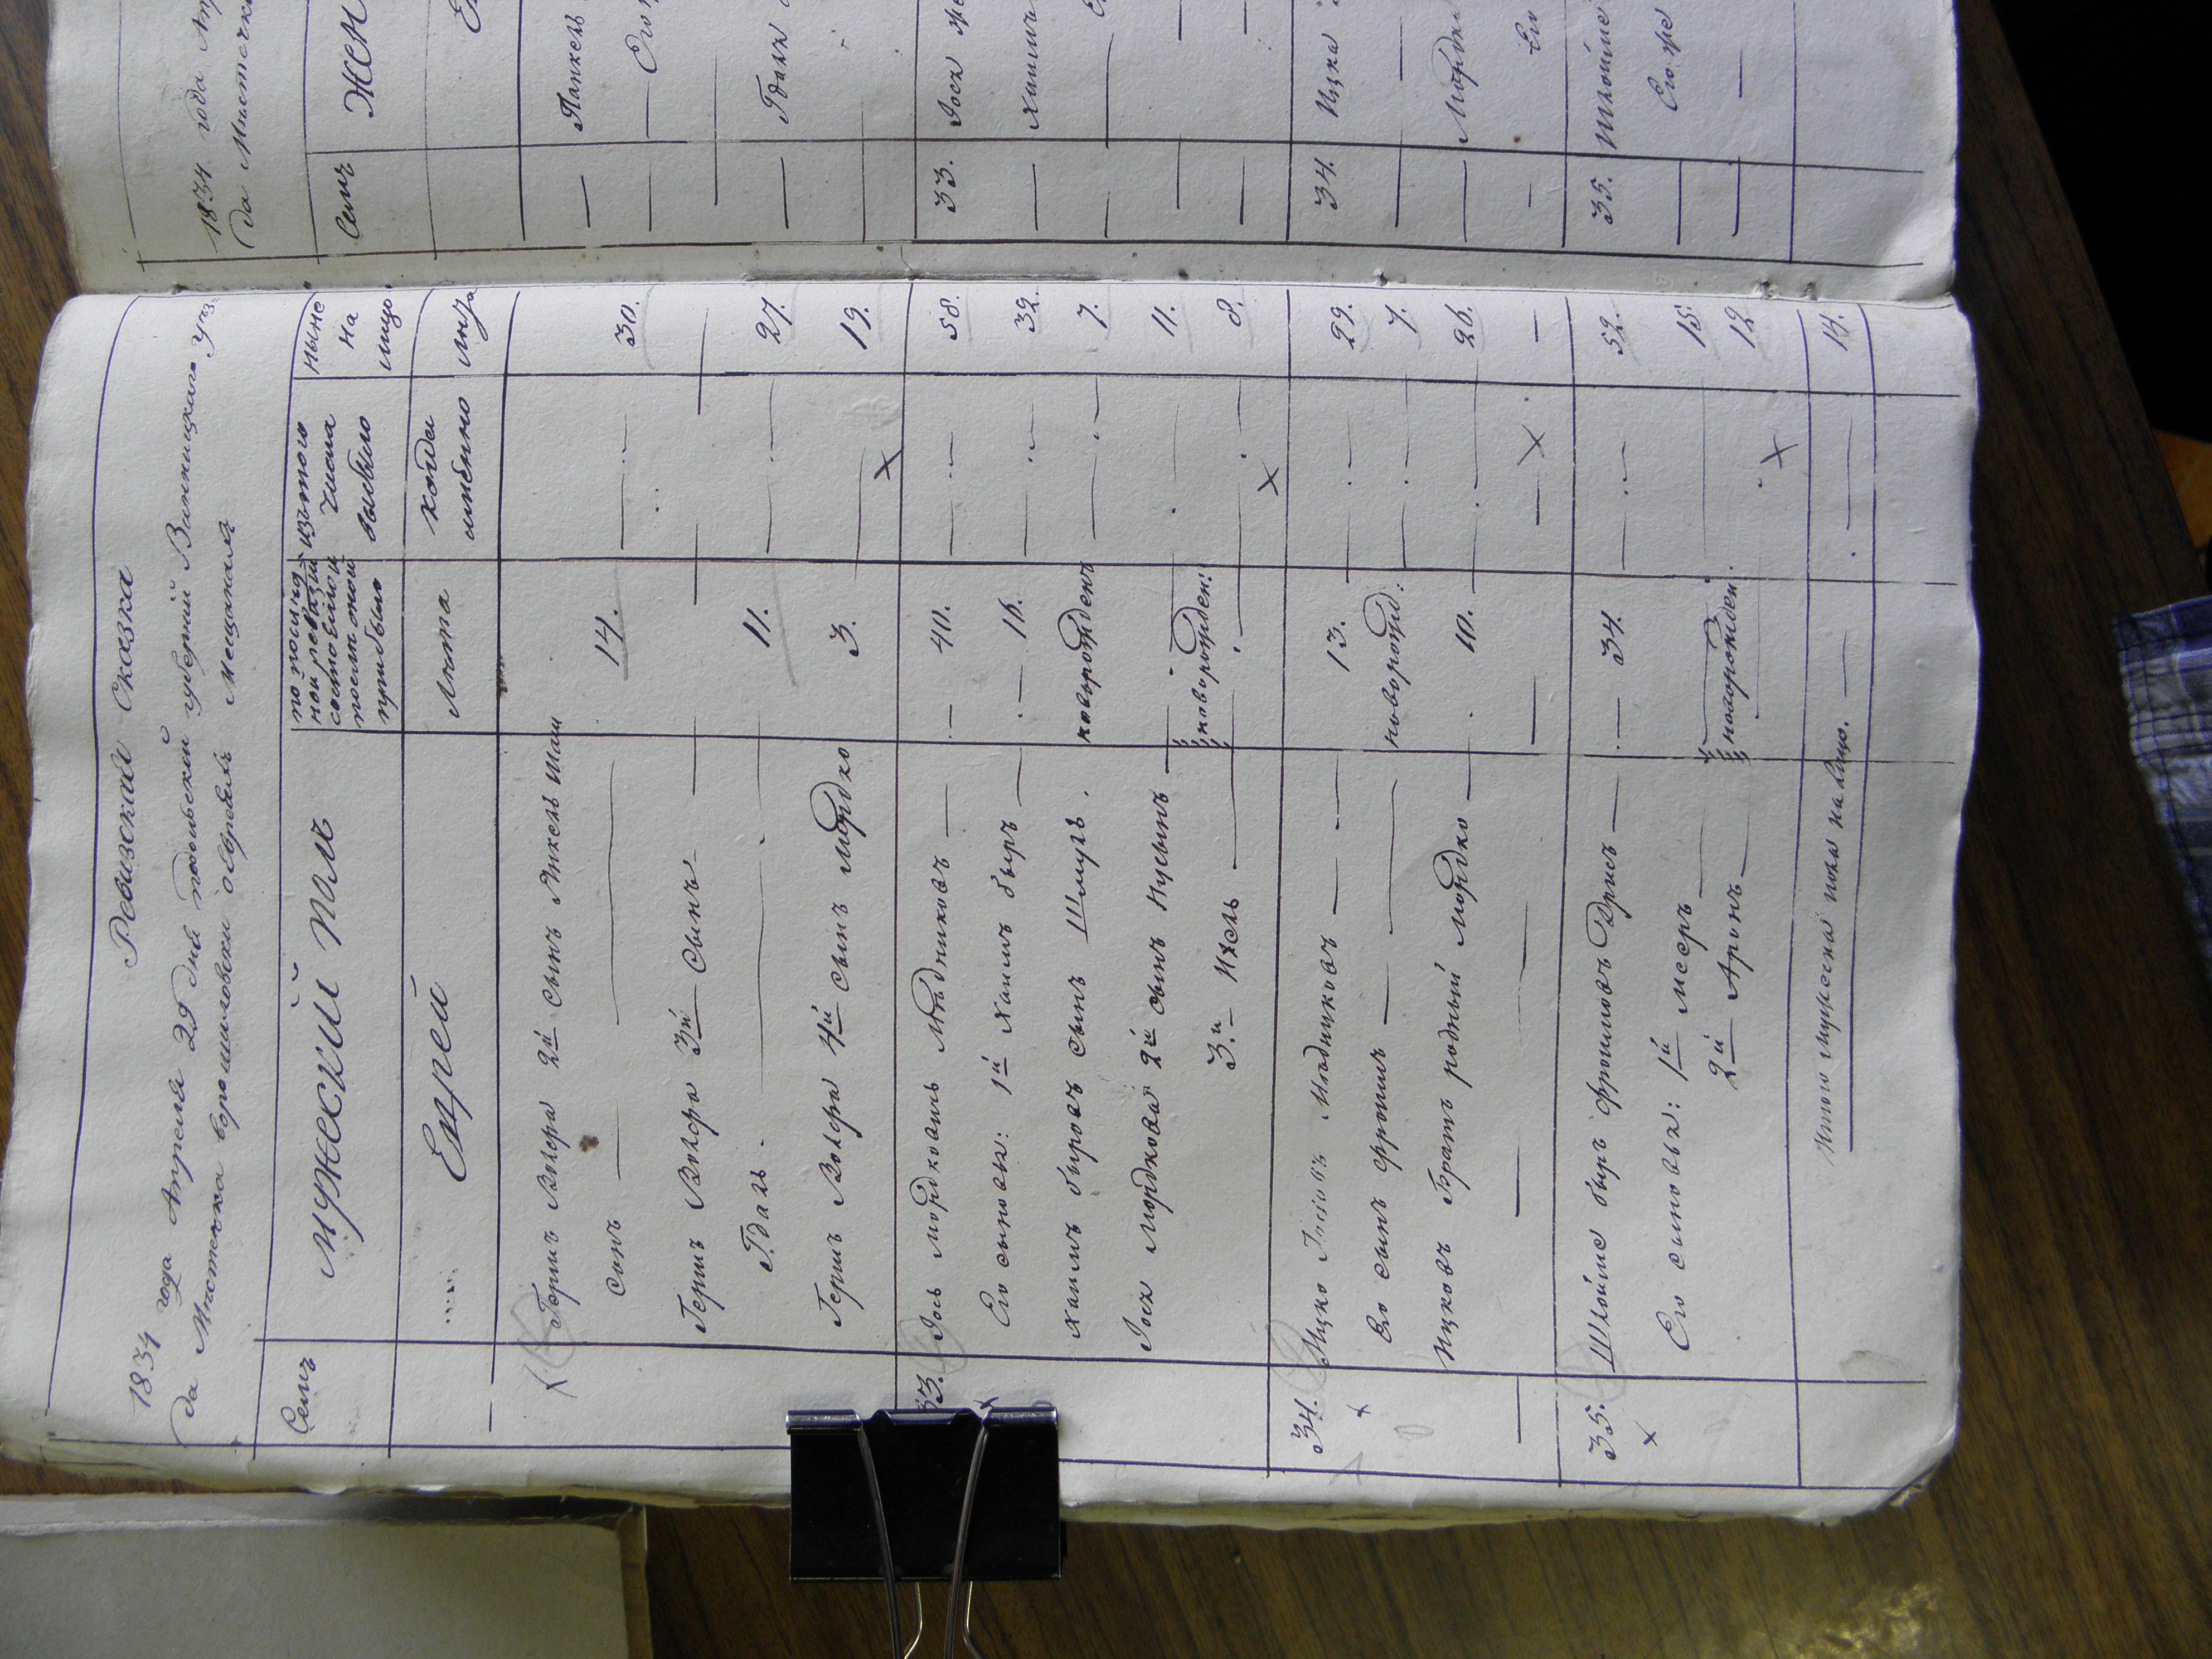 Ревизская Сказка
1834 года Апреля 29 дня подольской губернии Винницкого уез:
да Местечка ворошиловски о евреяхъ мещанахъ
Семъ
мужескій полъ
по послѣд
ней ревизіи
состояло и
послѣ оной
прибыло
изъ того
числа
выбыло
ныне
на
лицо
Еврей
лѣта
когда
имѣнно
лѣта
Гершъ Волхра 2й сынъ Янкель Шаи
сынъ 14. 30.
Гершъ Волхра 3й сынъ
Гдаль. 11. 27.
Гершъ Волхра 4й сынъ мордко 3. 19.
33. Іось мордковичъ Мѣдниковъ 40. 58.
Его сыновья: 1й хаимъ быръ 16. 32.
хаимъ быровъ сынъ Шмулъ. новорожденъ 7.
Іося мордкова 2й сынъ Нусынъ 11.
новорожден:
3й Ицель 8.
34. Ицко Іосіовъ Мѣдниковъ 13. 29.
Его сынъ фроимъ новорожд: 7.
Ицковъ братъ родный мордко 10. 26.
35. Шлойме быръ фроимовъ Дрисъ 34. 52.
Его сыновья: 1й месеръ 15.
новорожден.
2й Аронъ 12
Итого мужеска пола налицо. 14.
1834 года Ап
да Местечка
Семъ
Жен
Янкель
Его
Гдаля
33. Іося же
хаима
34. Ицка
мордк
Его
35. Шлойме
Его же